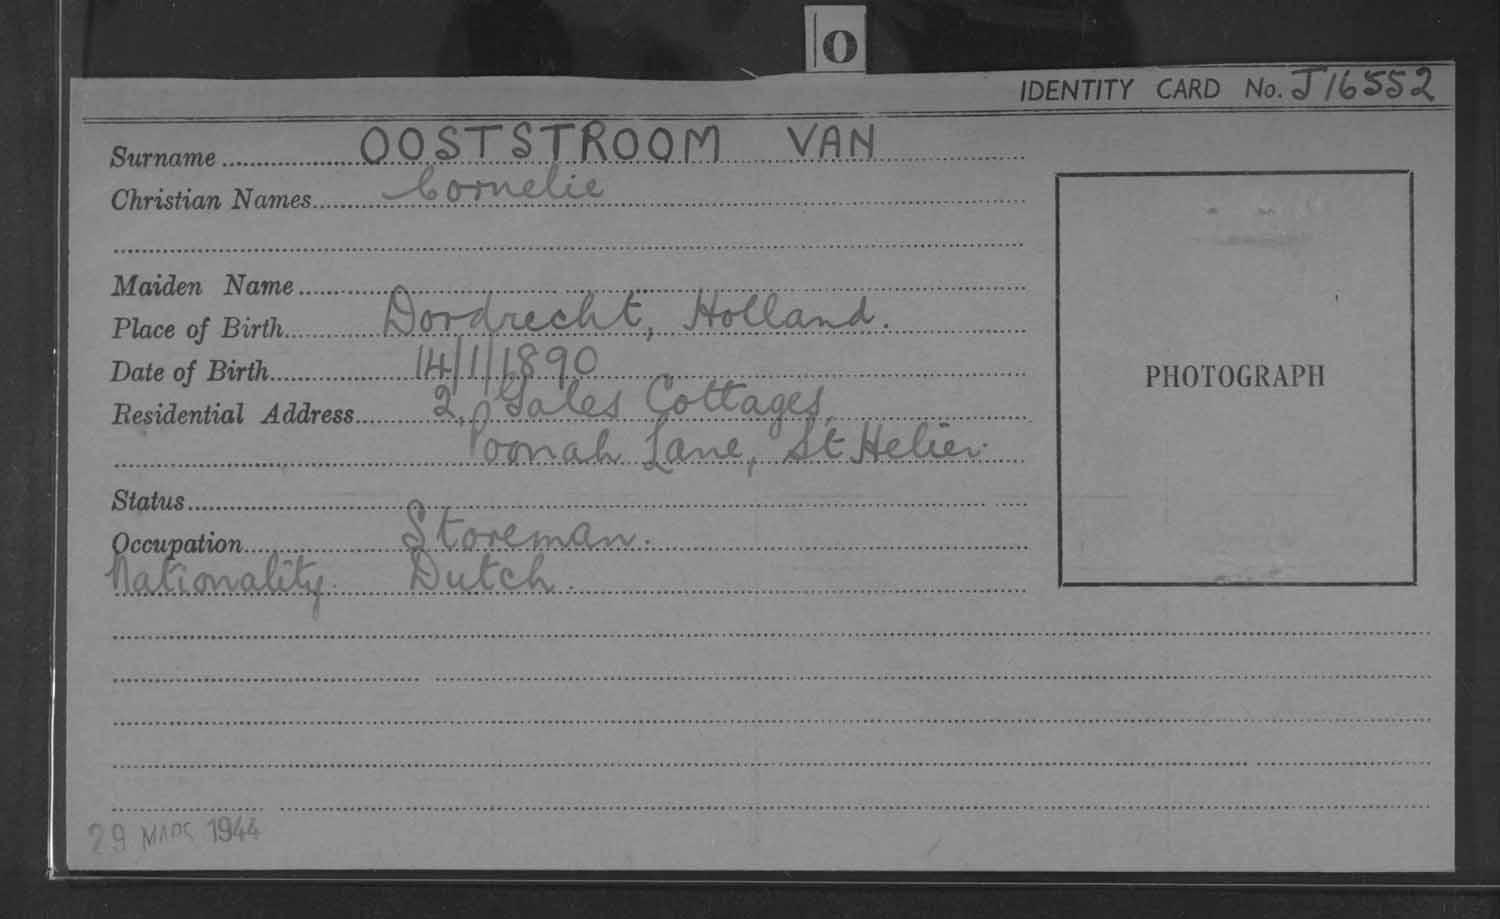 O
IDENTITY CARD No. J16552
Surname OOSTSTROOM VAN
Christian Names Cornelie
Maiden Name
Place of Birth Dordrecht, Holland.
Date of Birth 14/1/1890
Residential Address 2, Gales Cottages,
Poonah Lane, St Helier.
Status
Occupation Storeman.
Nationality. Dutch.
PHOTOGRAPH
29 MARS 1944